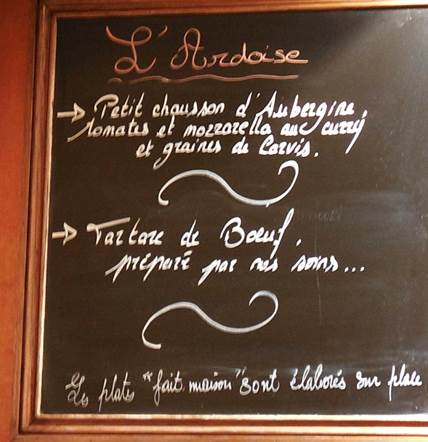 L'Ardoise
→ Petit chausson d'Aubergine,
tomates et mozzarella au curry
et graines de Carvis.
→ Tartare de Bœuf,
préparé par nos soins...
Les plats "fait maison" sont élaborés sur place